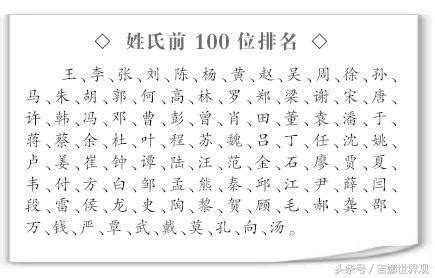 ◇ 姓氏前 100 位排名 ◇
王、李、张、刘、陈、杨、黄、赵、吴、周、徐、孙、
马、朱、胡、郭、何、高、林、罗、郑、梁、谢、宋、唐、
许、韩、冯、邓、曹、彭、曾、肖、田、董、袁、潘、于、
蒋、蔡、余、杜、叶、程、苏、魏、吕、丁、任、沈、姚、
卢、姜、崔、钟、谭、陆、汪、范、金、石、廖、贾、夏、
韦、付、方、白、邹、孟、熊、秦、邱、江、尹、薛、闫、
段、雷、侯、龙、史、陶、黎、贺、顾、毛、郝、龚、邵、
万、钱、严、覃、武、戴、莫、孔、向、汤。
头条号／吾娜世界观